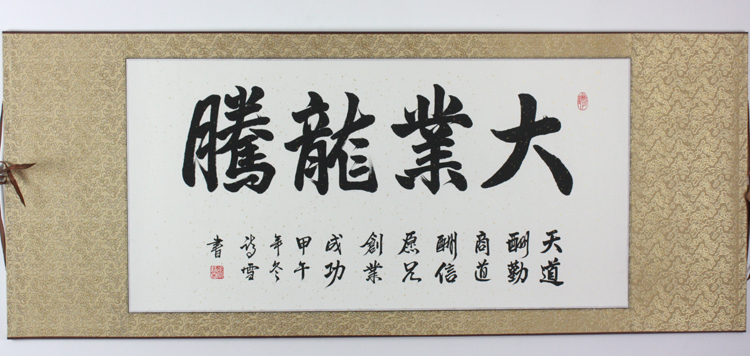 大業龍騰
天道
酬勤
商道
酬信
愿兄
創業
成功
甲午
年冬
詩雪
書